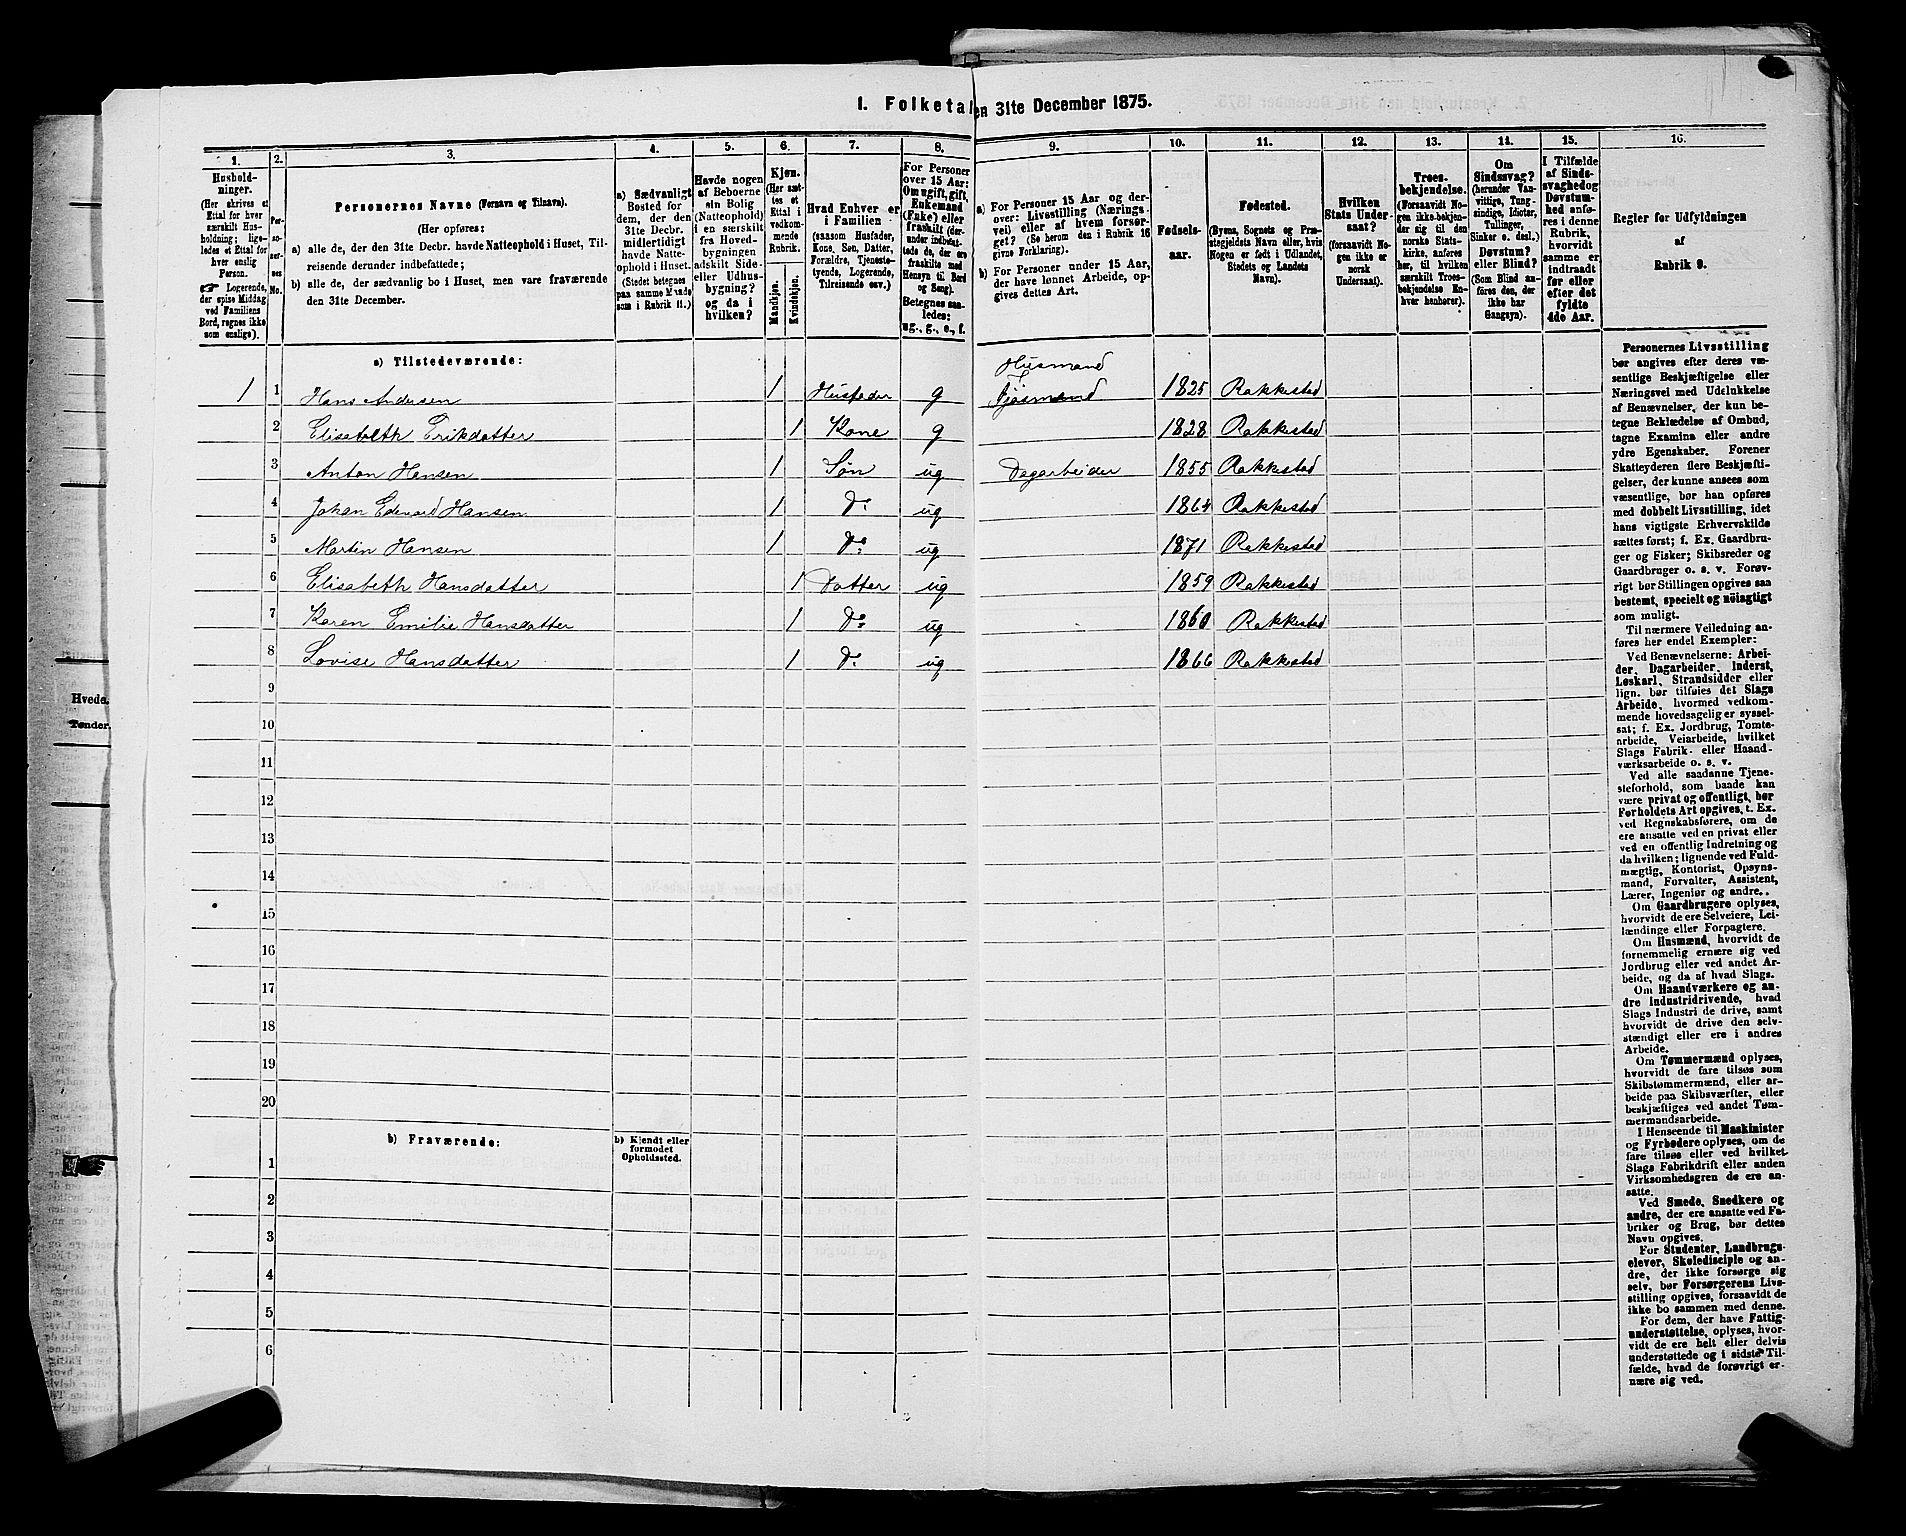 1. Folketal
en 31te December 1875.
1. 2. 3. 4. 5. 6. 7. 8. 9. 10. 11. 12. 13. 14. 15. 16.
Husholdninger.
(Her skrives et
Ettal for hver
særskilt Husholdning;
ligeledes et Ettal for
hver enslig
Person.
Logerende,
der spise Middag
ved Familiens
Bord, regnes ikke
som enslige).
Personernes No.
Personernes Navne (Fornavn og Tilnavn).
(Her opføres:
a) alle de, der den 31te Decbr. havde Natteophold i Huset, Til-
reisende derunder indbefattede;
b) alle de, der sædvanlig bo i Huset, men vare fraværende
den 31te December.
a) Sædvanligt
Bosted for
dem, der den
31te Decbr.
midlertidigt
havde Natte-
ophold i Huset.
(Stedet betegnes
paa samme Maade
som i Rubrik 11.)
Havde nogen
af Beboerne
sin Bolig
(Natteophold)
i en særskilt
fra Hoved-
bygningen
adskilt Side-
eller Udhus-
bygning?
og da i
hvilken?
Kjøn.
(Her sæt-
tes et
Ettal i
vedkom-
mende
Rubrik.
Mandkjøn.
Kvindekjøn.
Hvad Enhver er
i Familien
(saasom Husfader,
Kone, Søn, Datter,
Forældre, Tjeneste-
tyende, Logerende,
Tilreisende osv.)
For Personer
over 15 Aar:
Om ugift, gift,
Enkemand
(Enke) eller
fraskilt (der-
under indbefat-
tede de, der ere
fraskilte med
Hensyn til Bord
og Seng).
Betegnes saa-
ledes:
ug., g., e., f.
a) For Personer 15 Aar og der-
over: Livsstilling (Nærings-
vei) eller af hvem forsør-
get? (Se herom den i Rubrik 16
givne Forklaring).
b) For Personer under 15 Aar,
der have lønnet Arbeide, op-
gives dettes Art.
Fødsels-
aar.
Fødested.
(Byens, Sognets og Præ-
stegjeldets Navn eller, hvis
Nogen er født i Udlandet,
Stedets og Landets
Navn).
Hvilken
Stats Under-
saat?
(forsaavidt No-
gen ikke er
norsk
Undersaat).
Troes-
bekjendelse.
(Forsaavidt No-
gen ikke bekjen-
der sig til den
norske Stats-
kirke, anføres
her, til hvilken
særskilt Troes-
bekjendelse En-
hver henhører).
Om
Sindssvag?
(herunder Van-
vittige, Tung-
sindige, Idioter,
Tullinger,
Sinker o. desl.)
Døvstum?
eller Blind?
(Som Blind an-
føres den, der
ikke har
Gangsyn).
I Tilfælde
af Sinds-
svaghed og
Døvstum-
hed anfø-
res i denne
Rubrik,
hvorvidt
samme er
indtraadt
før eller
efter det
fyldte
4de Aar.
Regler for Udfyldningen
af
Rubrik 9.
a) Tilstedeværende:
Husmand
1 1 Hans Andersen 1 Husfader g Fjøsmand 1825 Rakkestad
2 Elisabeth Erikdatter 1 Kone g 1828 Rakkestad
3 Anton Hansen 1 Søn ug Dagarbeider 1855 Rakkestad
4 Johan Edvard Hansen 1 Do ug 1864 Rakkestad
5 Martin Hansen 1 Do ug 1871 Rakkestad
6 Elisabeth Hansdatter 1 Datter ug 1859 Rakkestad
7 Karen Emilie Hansdatter 1 Do ug 1860 Rakkestad
8 Lovise Hansdatter 1 Do ug 1866 Rakkestad
9
10
11
12
13
14
15
16
17
18
19
20
b) Fraværende:
b) Kjendt eller
formodet
Opholdssted.
1
2
3
4
5
6
Personernes Livsstilling
bør angives efter deres væ-
sentlige Beskjæftigelse eller
Næringsvei med Udelukkelse
af Benævnelser, der kun be-
tegne Beklædelse af Ombud,
tagne Examina eller andre
ydre Egenskaber. Forener
Skatteyderen flere Beskjæfti-
gelser, der kunne ansees som
væsentlige, bør han opføres
med dobbelt Livsstilling, idet
hans vigtigste Erhvervskilde
sættes først; f. Ex. Gaardbru-
ger og Fisker; Skibsreder og
Gaardbruger o. s. v. Forøv-
rigt bør Stillingen opgives saa
bestemt, specielt og nøiagtigt
som muligt.
Til nærmere Veiledning an-
føres her endel Exempler:
Ved Benævnelserne: Arbei-
der, Dagarbeider, Inderst,
Løskarl, Strandsidder eller
lign. bør tilføies det Slags
Arbeide, hvormed vedkom-
mende hovedsagelig er syssel-
sat; f. Ex. Jordbrug, Tomte-
arbeide, Veiarbeide, hvilket
Slags Fabrik- eller Haand-
værksarbeide o. s. v.
Ved alle saadanne Tjene-
steforhold, som baade kan
være privat og offentligt, bør
Forholdets Art opgives, t. Ex.
ved Regnskabsførere, om de
ere ansatte ved en privat eller
ved en offentlig Indretning og
da hvilken; lignende ved Fuld-
mægtig, Kontorist, Opsyns-
mand, Forvalter, Assistent,
Lærer, Ingeniør og andre.
Om Gaardbrugere oplyses,
hvorvidt de ere Selveiere, Lei-
lændinge eller Forpagtere.
Om Husmænd, hvorvidt de
fornemmelig ernære sig ved
Jordbrug eller ved andet Ar-
beide, og da af hvad Slags.
Om Haandværkere og an-
dre Industridrivende, hvad
Slags Industri de drive, samt
hvorvidt de drive den selv-
stændigt eller ere i andres
Arbeide.
Om Tømmermænd oplyses,
hvorvidt de fare tilsøs som
Skibstømmermænd, eller ar-
beide paa Skibsværfter, eller
beskjæftiges ved andet Tøm-
mermandsarbeide.
I Henseende til Maskinister
og Fyrbødere oplyses, om de
fare tilsøs eller ved hvilket
Slags Fabrikdrift eller anden
Virksomhedsgren de ere an-
satte.
Ved Smede, Snedkere og
andre, der ere ansatte ved Fa-
briker og Brug, bør dettes
Navn opgives.
For Studenter, Landbrugs-
elever, Skoledisciple og an-
dre, der ikke forsørge sig
selv, bør Forsørgerens Livs-
stilling opgives, forsaavidt de
ikke bo sammen med denne.
For dem, der have Fattig-
understøttelse, oplyses, hvor-
vidt de ere helt eller delvis
understøttede og i sidste Til-
fælde, hvad de forøvrigt er-
nære sig ved.
Hvede.
Tønder.